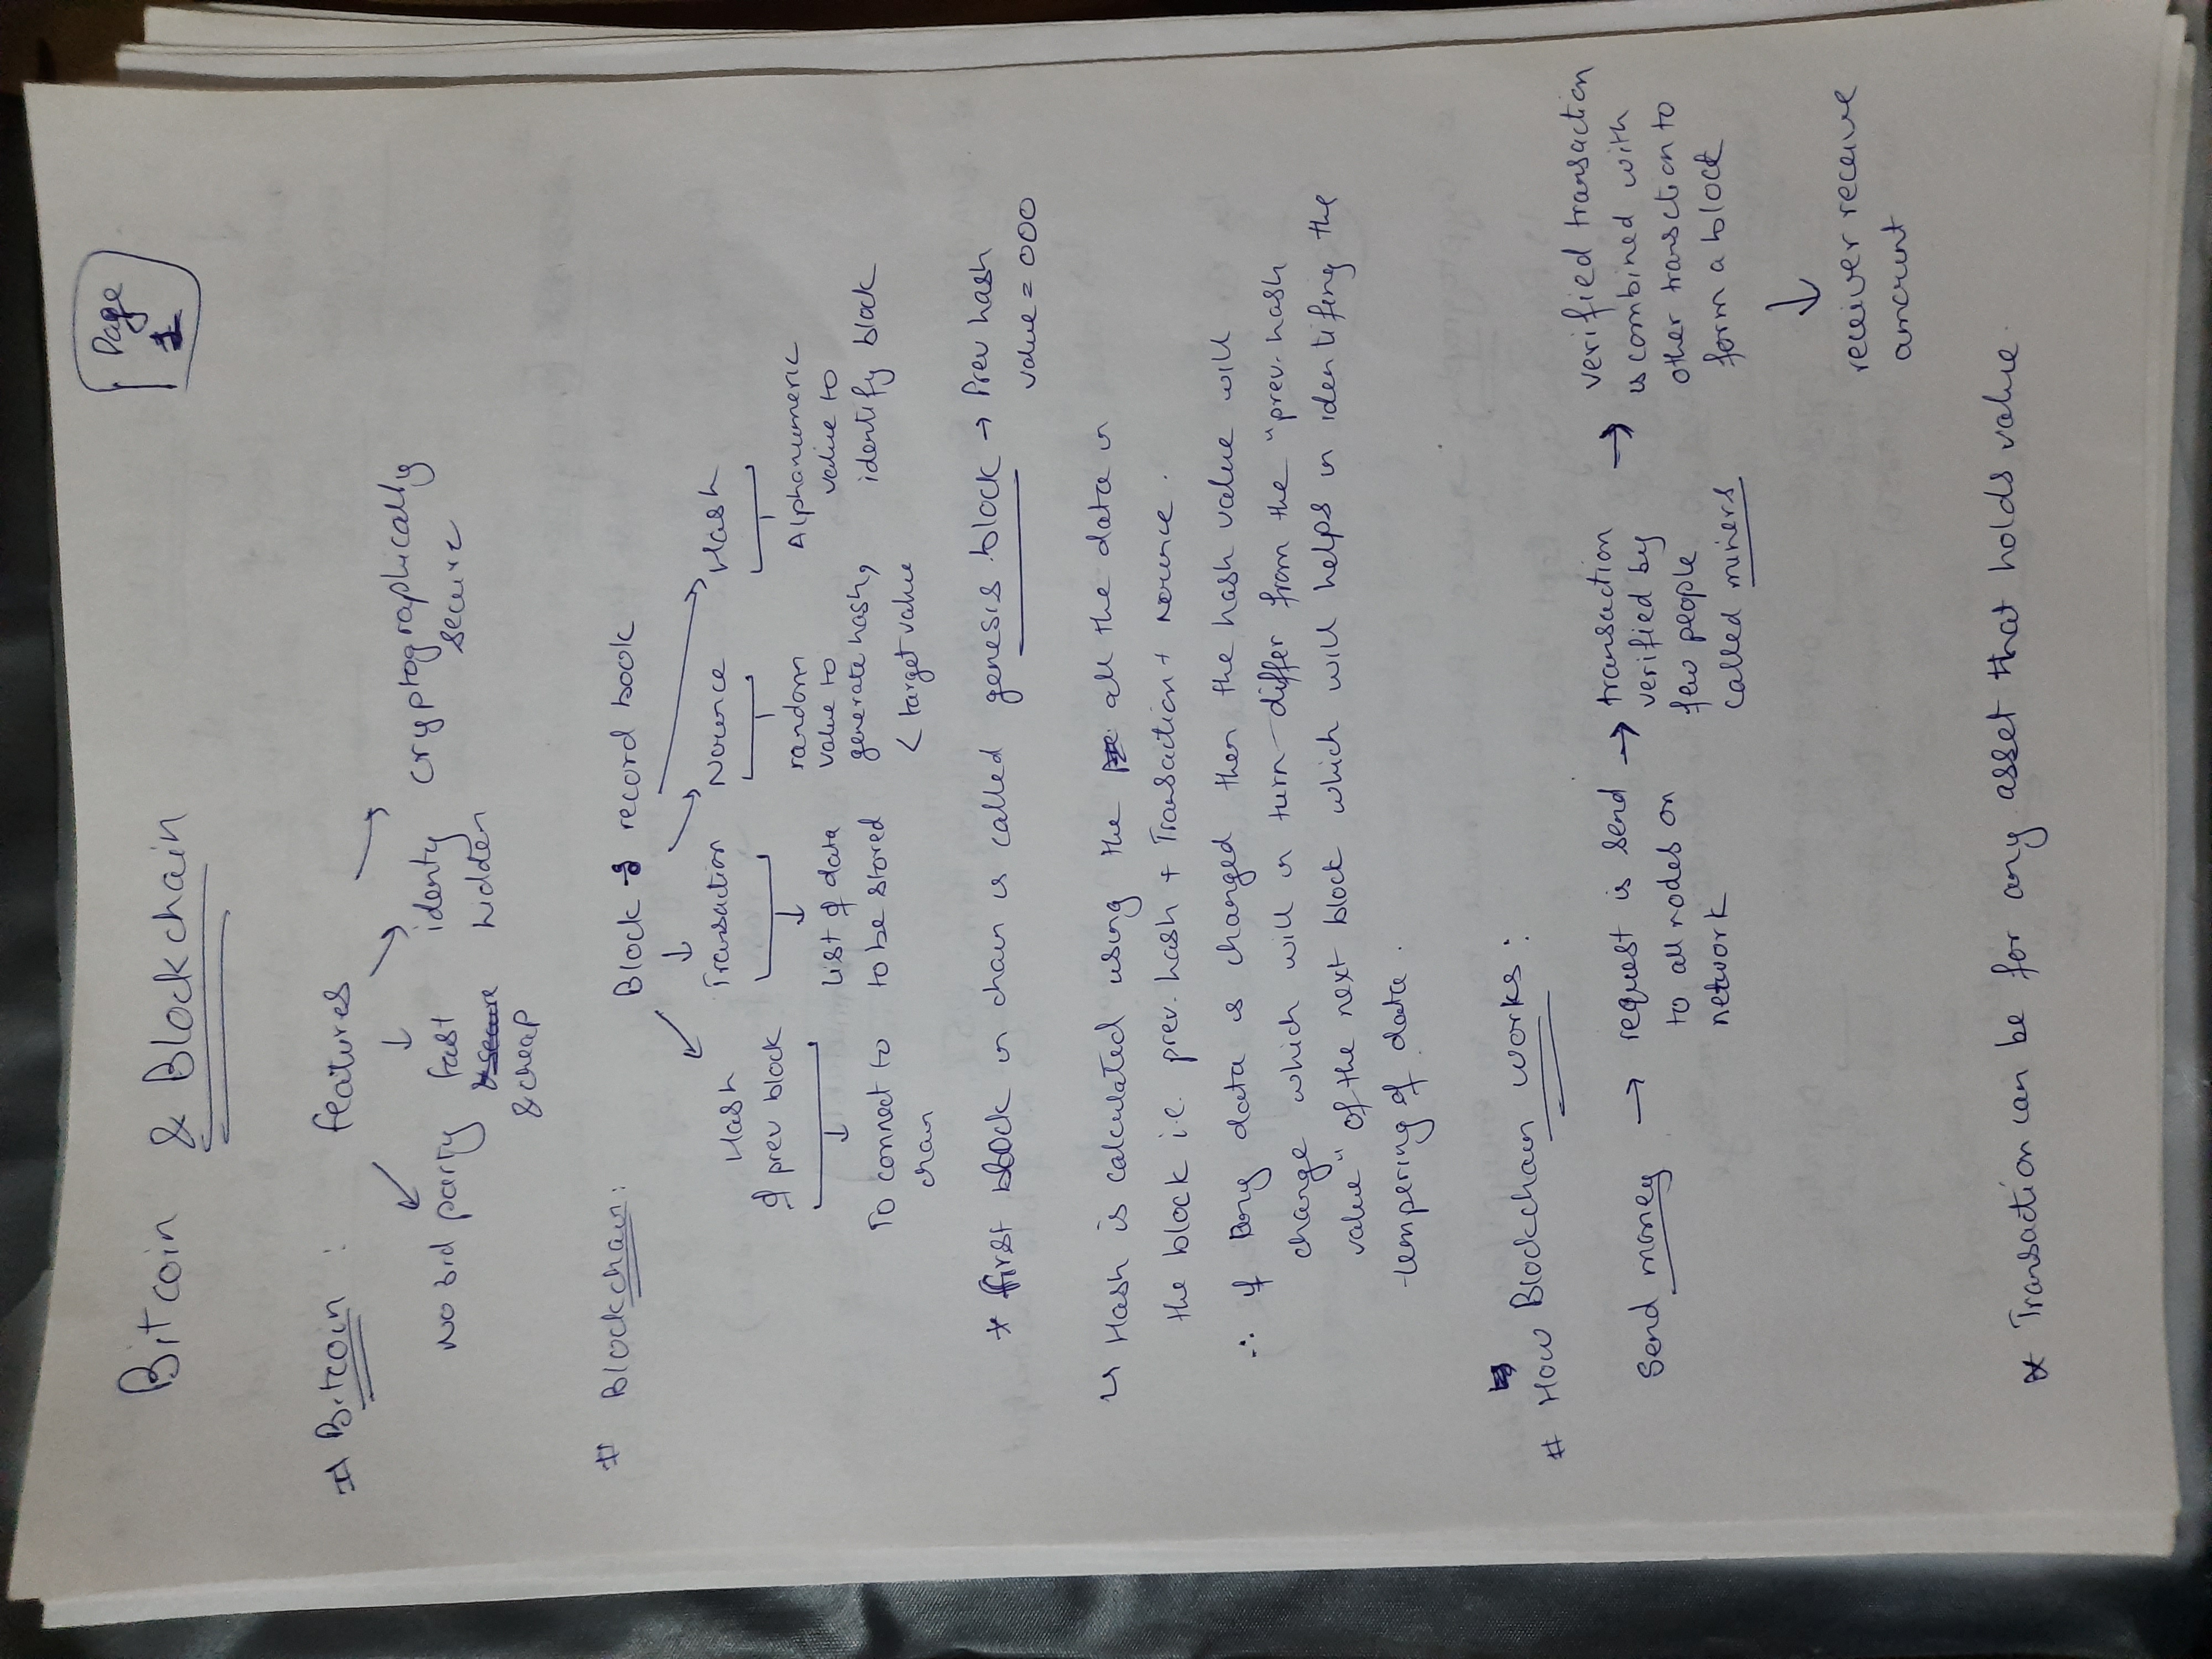 Bitcoin & Blockchain
Page
1
# Bitcoin : features
No 3rd party
fast
& secure
& cheap
identy
hidden
cryptographically
secure
# Blockchain:
Block → record book
Hash
of prev block
To connect to
chain
Transaction
List of data
to be stored
Nounce
random
value to
generate hash,
< target value
Hash
Alphanumeric
value to
identify block
* First block in chain is called genesis block → Prev hash
value = 000
↳ Hash is calculated using the all the data in
the block i.e. prev. hash + Transaction + Nounce .
∴ if any data is changed then the hash value will
change which will in turn differ from the "prev. hash
value" of the next block which will helps in identifing the
tempering of data .
# How Blockchain works :
Send money →
request is send
to all nodes on
network
→ transaction
verified by
few people
called miners
→ verified transaction
is combined with
other transction to
form a block
↓
receiver receive
amount
* Transaction can be for any asset that holds value.